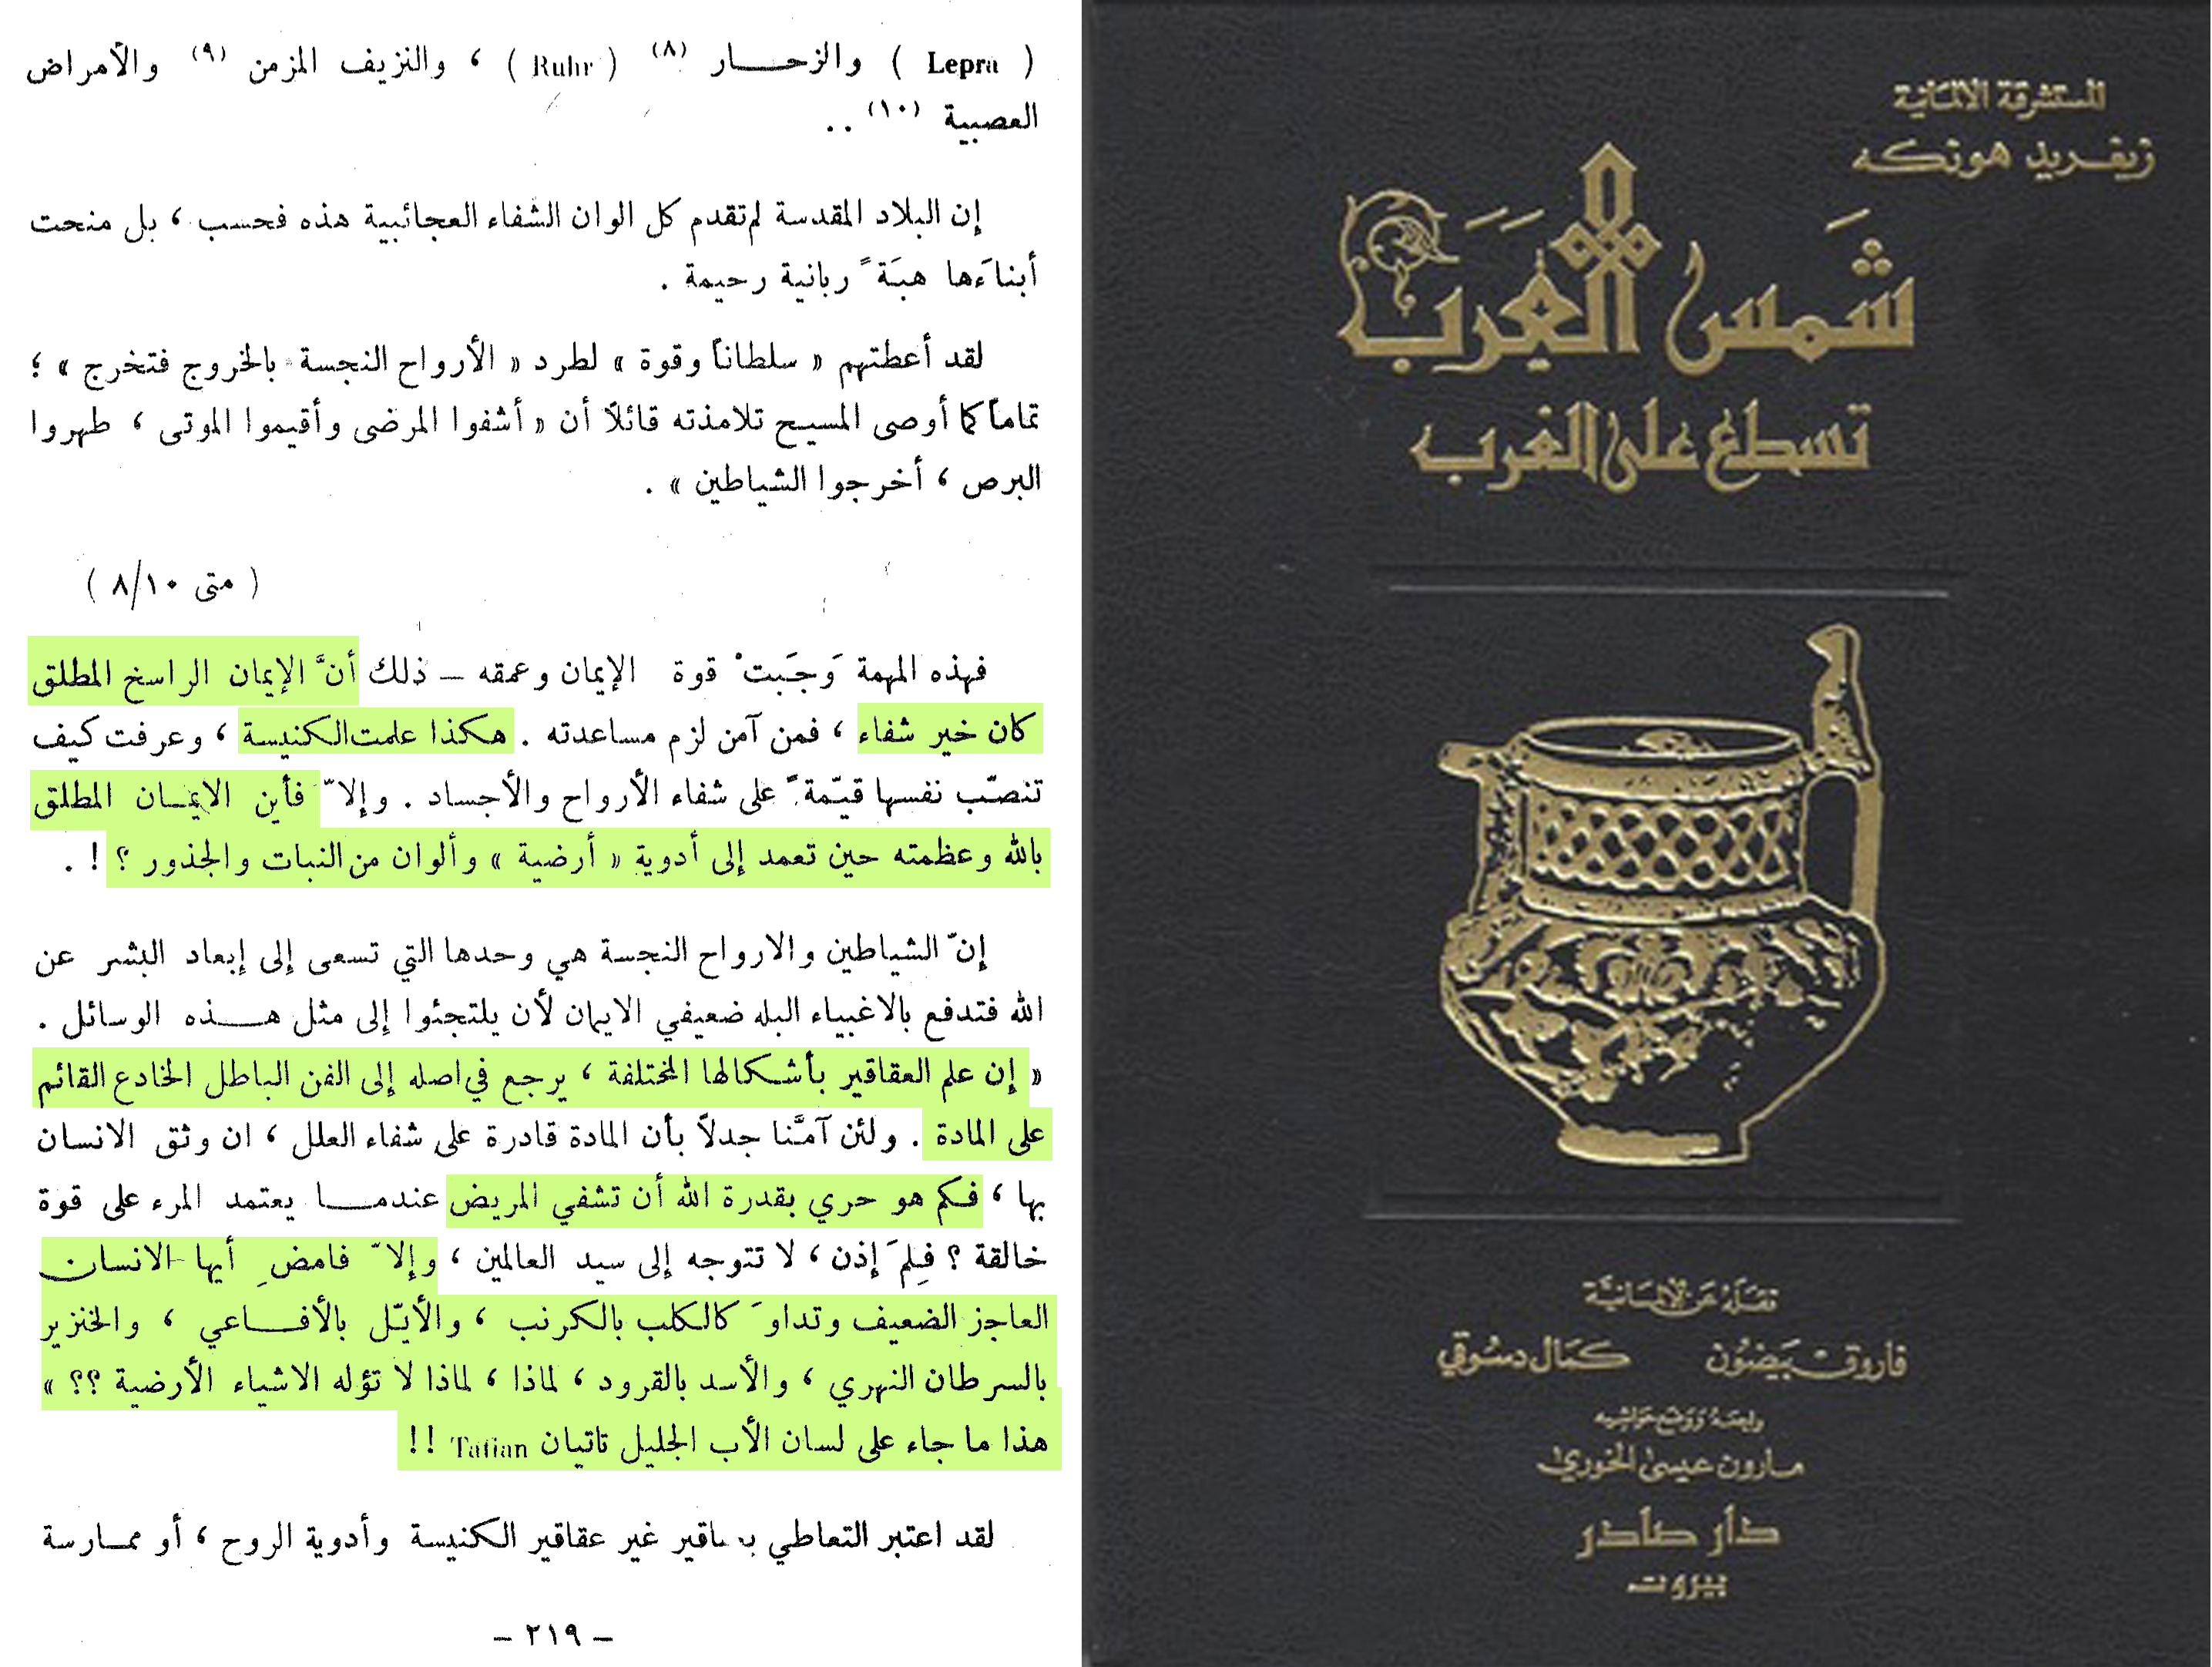 ( Lepra ) والزحـــار (٨) ( Ruhr ) ، والنزيف المزمن (٩) والأمراض
العصبية (١٠) ..
إن البلاد المقدسة لم تقدم كل الوان الشفاء العجائبية هذه فحسب ، بل منحت
أبناءَها هبَةً ربانية رحيمة .
لقد أعطتهم « سلطاناً وقوة » لطرد « الأرواح النجسة بالخروج فتخرج » ؛
تماماً كما أوصى المسيح تلامذته قائلاً أن « أشفوا المرضى وأقيموا الموتى ، طهروا
البرص ، أخرجوا الشياطين » .
( متى ٨/١٠ )
فهذه المهمة وَجَبتْ قوة الإيمان وعمقه – ذلك أنَّ الإيمان الراسخ المطلق
كان خير شفاء ، فمن آمن لزم مساعدته . هكذا علمت الكنيسة ، وعرفت كيف
تنصّب نفسها قيّمةً على شفاء الأرواح والأجساد . وإلاّ فأين الايمــان المطلق
بالله وعظمته حين تعمد إلى أدوية « أرضية » وألوان من النبات والجذور ؟ ! .
إنّ الشياطين والارواح النجسة هي وحدها التي تسعى إلى إبعاد البشر عن
الله فتدفع بالاغبياء البله ضعيفي الايمان لأن يلتجئوا إلى مثل هـــذه الوسائل .
« إن علم العقاقير بأشكالها المختلفة ، يرجع في اصله إلى الفن الباطل الخادع القائم
على المادة . ولئن آمنَّا جدلاً بأن المادة قادرة على شفاء العلل ، ان وثق الانسان
بها ، فكم هو حري بقدرة الله أن تشفي المريض عندمــا يعتمد المرء على قوة
خالقة ؟ فلِمَ إذن ، لا تتوجه إلى سيد العالمين ، وإلاّ فامضِ أيها الانسان
العاجز الضعيف وتداوَ كالكلب بالكرنب ، والأيّل بالأفــاعي ، والخنزير
بالسرطان النهري ، والأسد بالقرود ، لماذا ، لماذا لا تؤله الاشياء الأرضية ؟؟ »
هذا ما جاء على لسان الأب الجليل تاتيان Tatian !!
لقد اعتبر التعاطي بعقاقير غير عقاقير الكنيسة وأدوية الروح ، أو ممــارسة
– ٢١٩ –
للمستشرقة الالمانية
زيغريد هونكه
شَمسُ العَرَب
تسطع على الغرب
نقلَهُ عَن الألمانيَّة
فاروق بَيضُون كمَال دسُوقي
راجعَهُ وَوَضع حَواشيه
مارون عيسى الخوري
دار صادر
بيروت